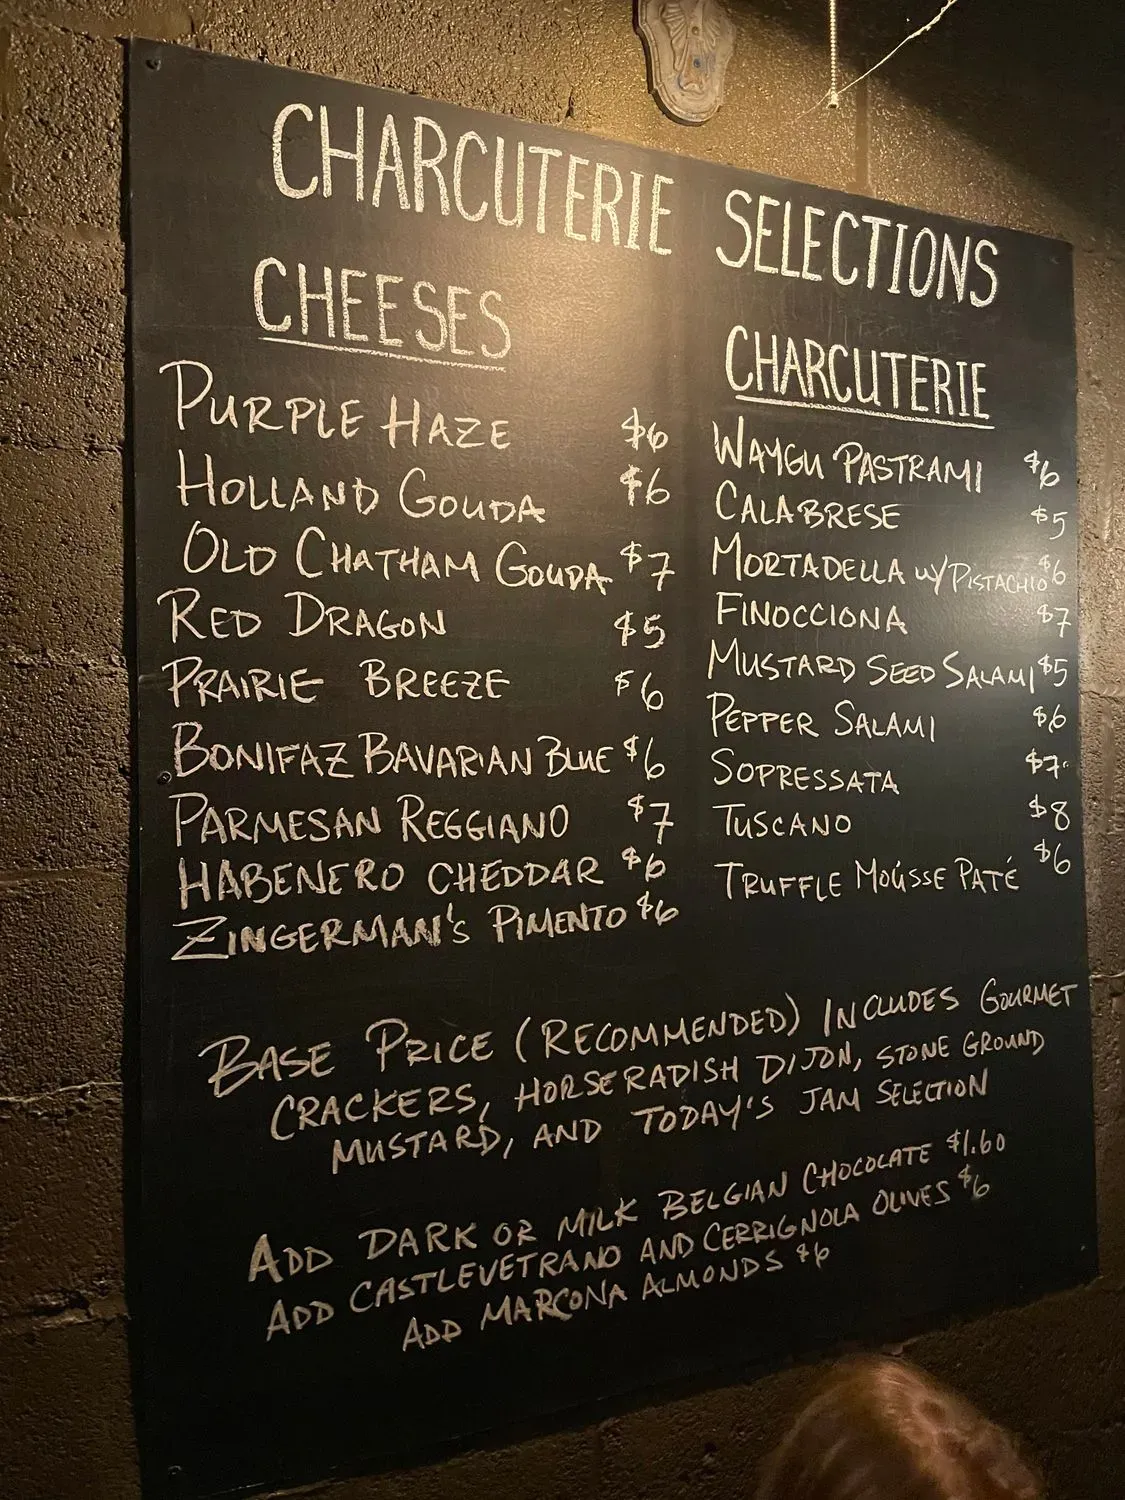 CHARCUTERIE SELECTIONS
CHEESES
PURPLE HAZE $6
HOLLAND GOUDA $6
OLD CHATHAM GOUDA $7
RED DRAGON $5
PRAIRIE BREEZE $6
BONIFAZ BAVARIAN BLUE $6
PARMESAN REGGIANO $7
HABENERO CHEDDAR $6
ZINGERMAN'S PIMENTO $6
CHARCUTERIE
WAYGU PASTRAMI $6
CALABRESE $5
MORTADELLA W/PISTACHIO $6
FINOCCIONA $7
MUSTARD SEED SALAMI $5
PEPPER SALAMI $6
SOPRESSATA $7
TUSCANO $8
TRUFFLE MOUSSE PATÉ $6
BASE PRICE (RECOMMENDED) INCLUDES GOURMET
CRACKERS, HORSERADISH DIJON, STONE GROUND
MUSTARD, AND TODAY'S JAM SELECTION
ADD DARK OR MILK BELGIAN CHOCOLATE $1.60
ADD CASTLEVETRANO AND CERRIGNOLA OLIVES $6
ADD MARCONA ALMONDS $6